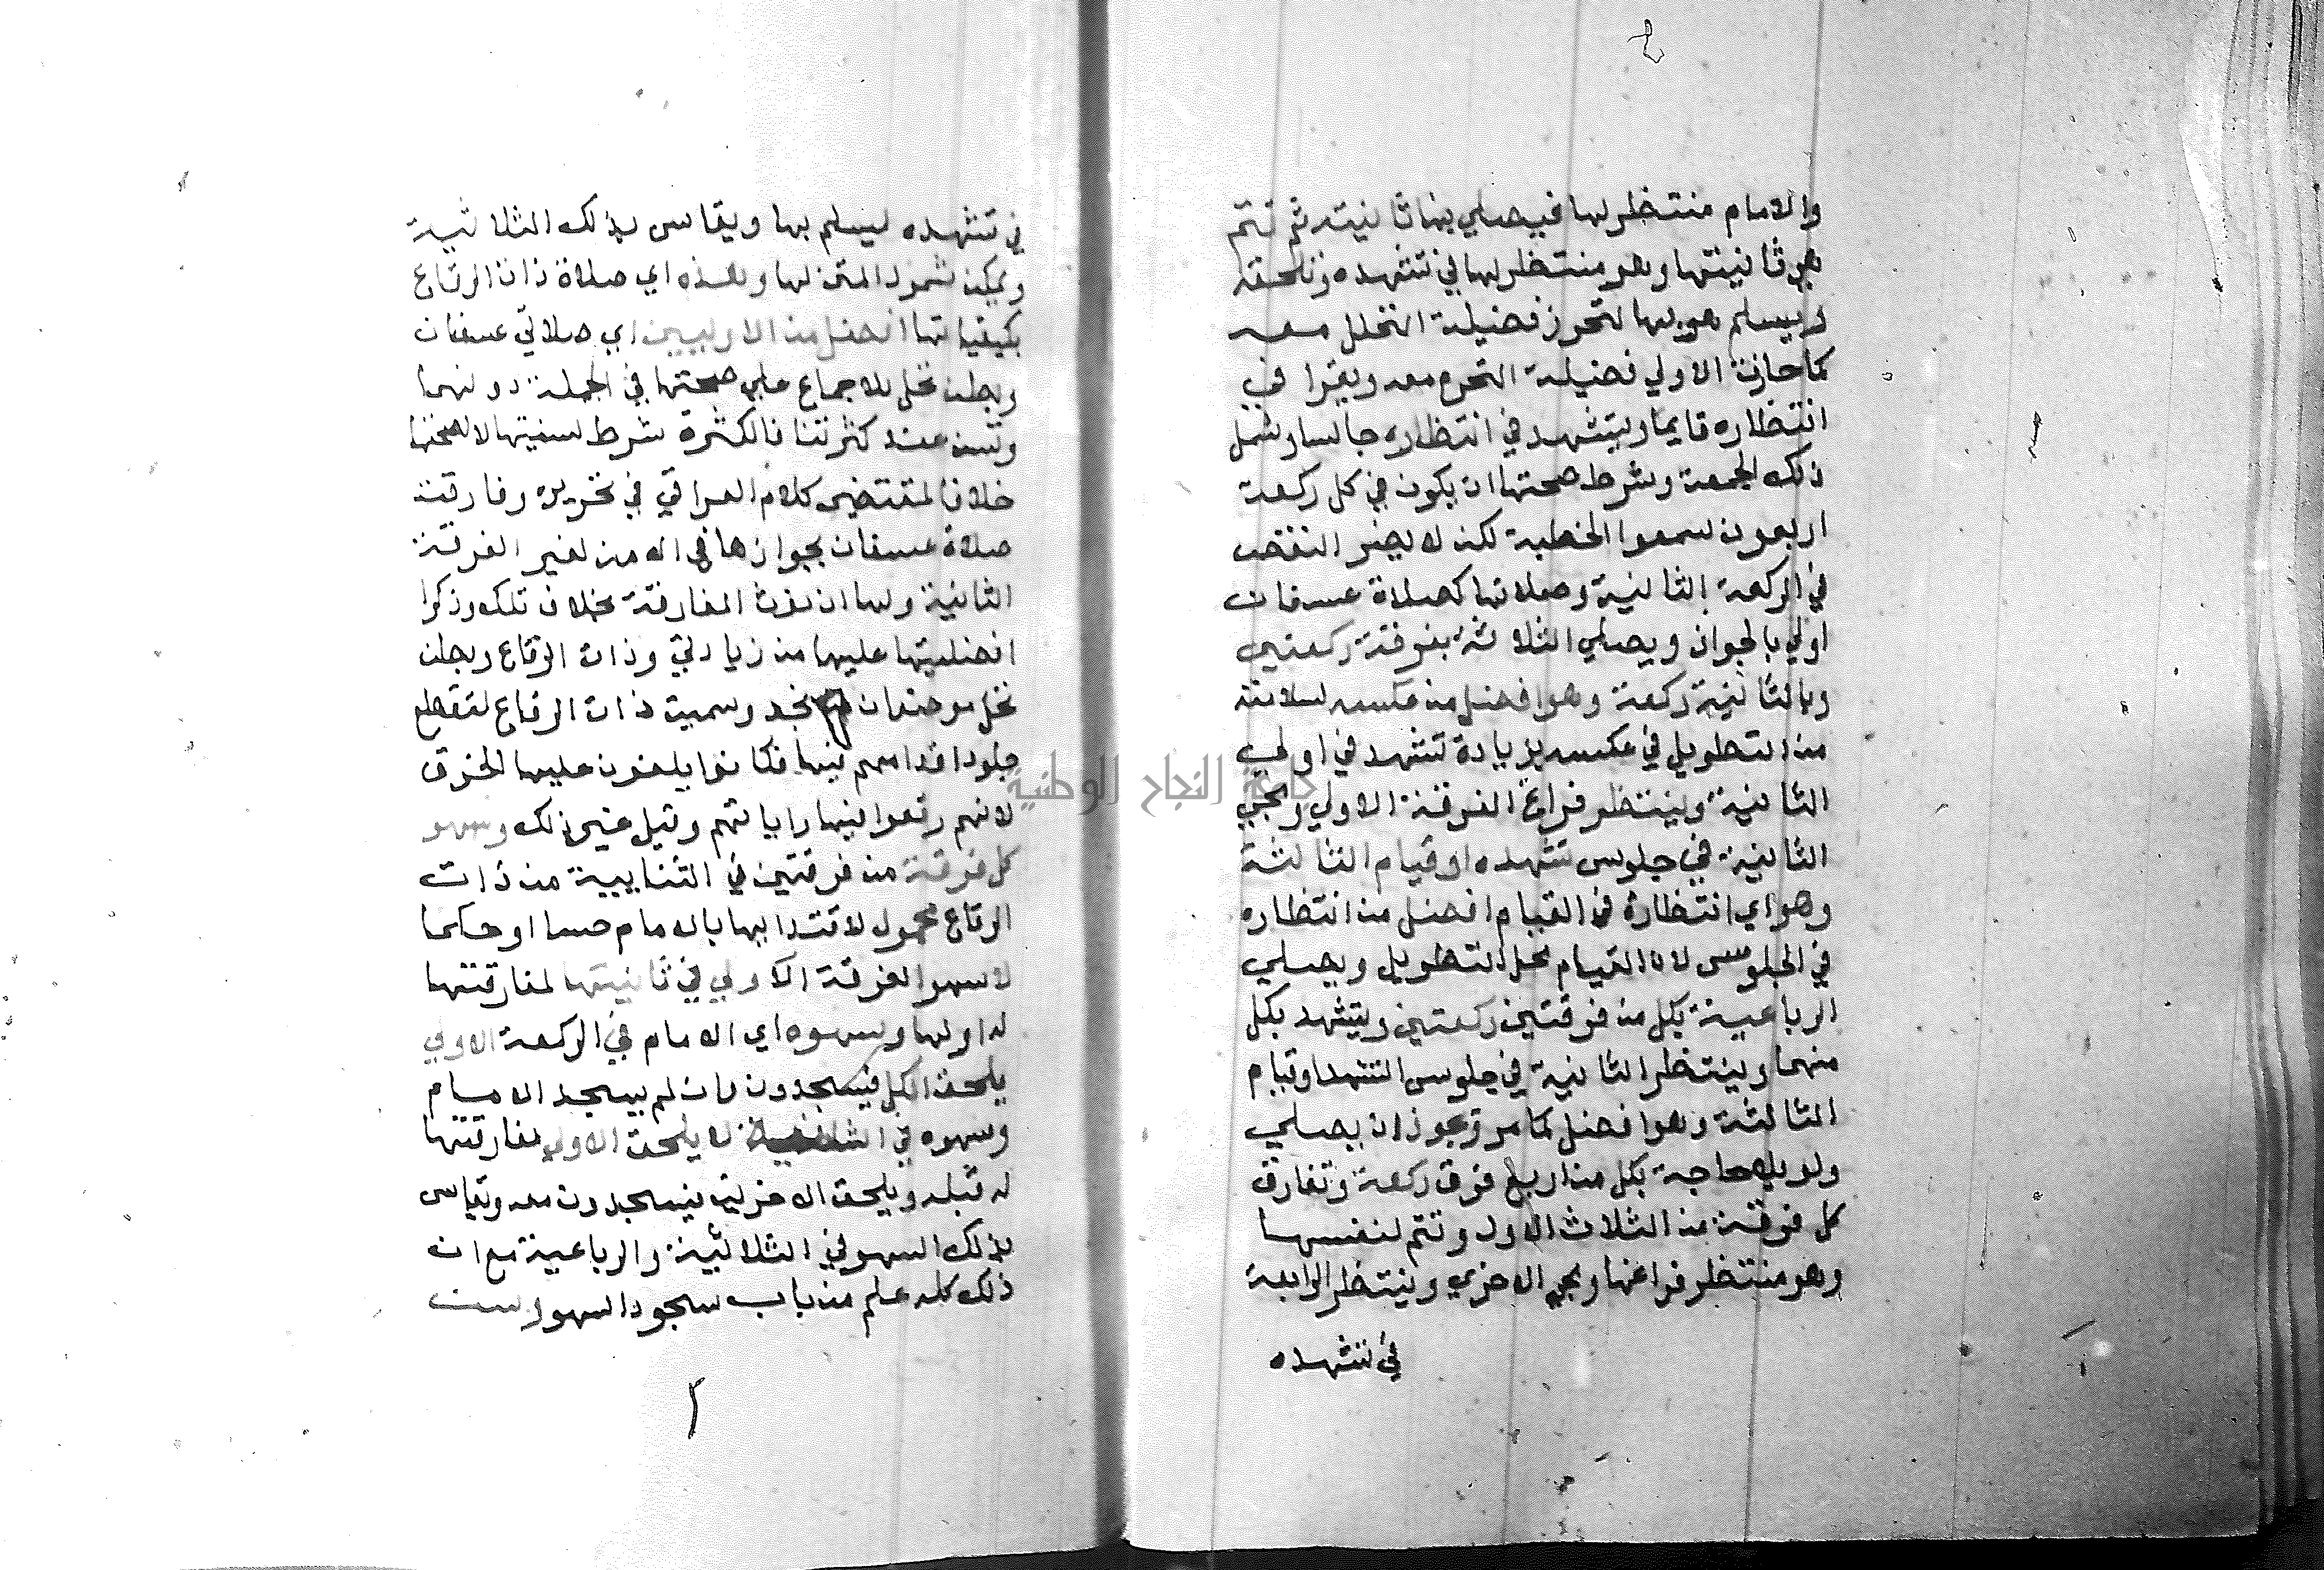 والامام منتظر لها فيصلي بها ثانيته ثم تتم
هي ثانيتها وهو منتظر لها في تشهده وتلحقه
ويسلم هو بها لتحوز فضيلة التحلل معه
كما حازت الاولي فضيلة التحرم معه ويقرا في
انتظاره قايما ويتشهد في انتظاره جالسا وشمل
ذلك الجمعة وشرط صحتها ان يكون في كل ركعة
اربعون سمعوا الخطبة لكن لا يضر النقص
في الركعة الثانية وصلاتها كصلاة عسفان
اولي بالجواز ويصلي الثلاثة بفرقة ركعتين
وبالثانية ركعة وهو افضل من عكسه لسلامته
من التطويل في عكسه بزيادة تشهد في اولي
الثانية وينتظر فراغ الفرقة الاولي ومجي
الثانية في جلوس تشهده او قيام الثالثة
وهو اي انتظاره في القيام افضل من انتظاره
في الجلوس لان القيام محل التطويل ويصلي
الرباعية بكل من فرقتين ركعتين ويتشهد بكل
منهما وينتظر الثانية في جلوس التشهد او قيام
الثالثة وهو افضل كما مر وتجوز ان يصلي
ولو بلا حاجة بكل من اربع فرق ركعة وتفارق
كل فرقة من الثلاث الاول وتتم لنفسها
وهو منتظر فراغها ومجي الاخري وينتظر الرابعة
في تشهده
في تشهده ليسلم بها ويقاس بذلك الثلاثية
ويمكن شمول المتن لها وهذه اي صلاة ذات الرقاع
بكيفياتها افضل من الاوليين اي صلاتي عسفان
وبطن نخل للاجماع علي صحتها في الجملة دونهما
وتسن عند كثرتنا فالكثرة شرط لسنيتها لا لصحتها
خلافا لمقتضي كلام العراقي في تحريره وفارقت
صلاة عسفان بجوازها في الامن لغير الفرقة
الثانية ولها ان نوت المفارقة بخلاف تلك وذكر
افضليتها عليها من زيادتي وذات الرقاع وبطن
نخل موضعان بنجد وسميت ذات الرقاع لتقطع
جلود اقدامهم فيها فكانوا يلفون عليها الخرق
لانهم رقعوا فيها راياتهم وقيل غير ذلك وسهو
كل فرقة من فرقتين في الثنايية من ذات
الرقاع محمول لاقتدايها بالامام حسا او حكما
لا سهو الفرقة الاولي في ثانيتها لمفارقتها
له اولها وسهوه اي الامام في الركعة الاولي
يلحق الكل فيسجدون وان لم يسجد الامام
وسهوه في الثانية لا يلحق الاولي لمفارقتها
له قبله ويلحق الاخرية فيسجدون معه ويقاس
بذلك السهو في الثلاثية والرباعية مع ان
ذلك كله علم من باب سجود السهو وسن